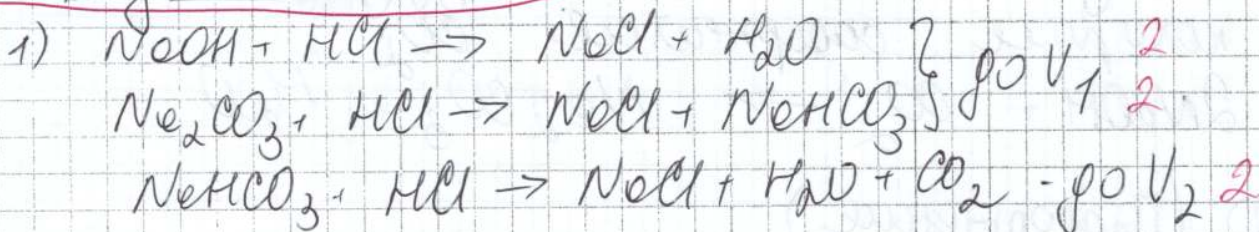 1) NaOH + HCl → NaCl + H₂O } до V₁ 2
Na₂CO₃ + HCl → NaCl + NaHCO₃ } 2
NaHCO₃ + HCl → NaCl + H₂O + CO₂ - до V₂ 2